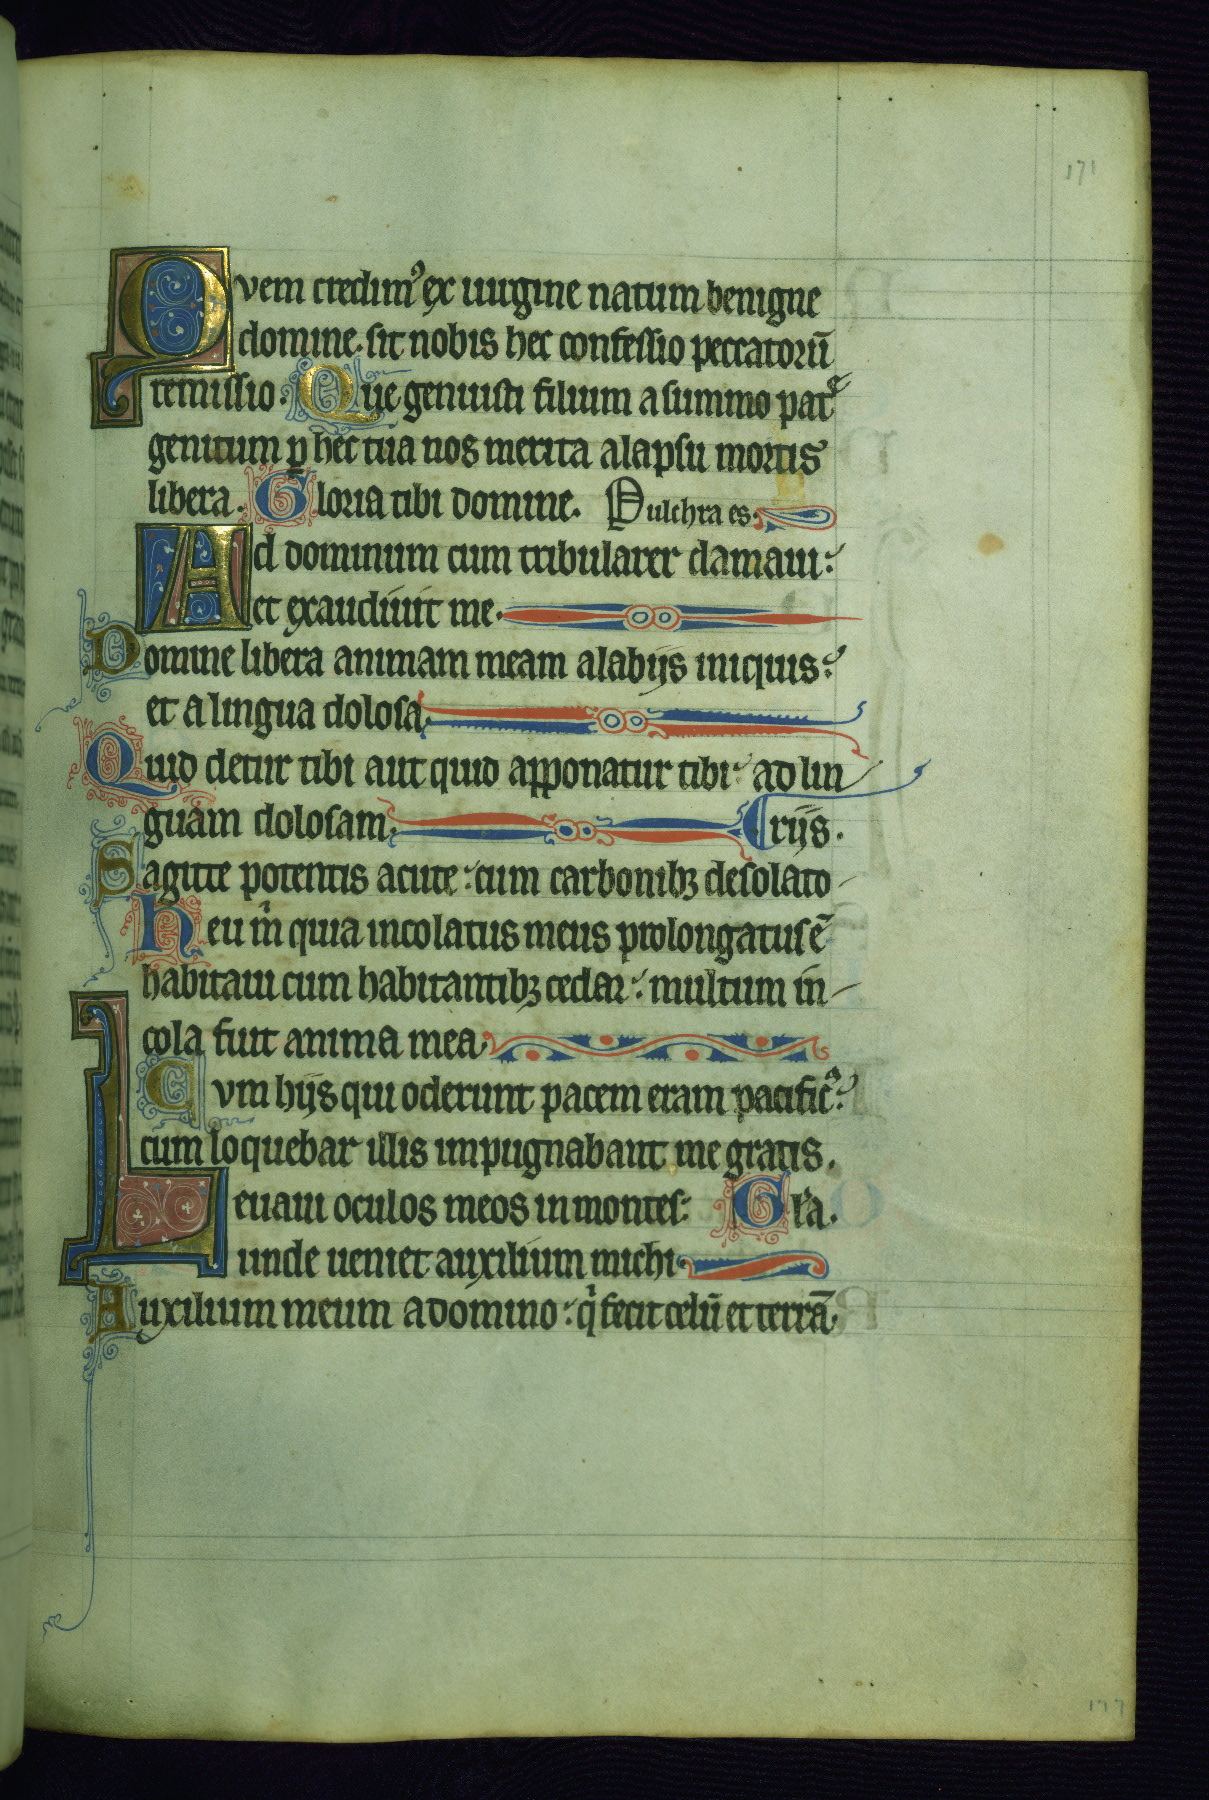 171
Qvem credimꝰ ex uirgine natum benigne
domine. sit nobis hec confessio peccatorū
remissio. Que genuisti filium a summo patͤ
genitum ꝑ hec tua nos merita a lapsu mortis
libera. Gloria tibi domine. Pulchra es.
Ad dominum cum tribularer clamaui:
et exaudiuit me.
Domine libera animam meam a labijs iniquis:
et a lingua dolosa.
Quid detur tibi aut quid apponatur tibi: ad lin
guam dolosam. Crijs.
Sagitte potentis acute: cum carbonibꝫ desolato
Heu m̄ quia incolatus meus prolongatus ē
habitaui cum habitantibꝫ cedar: multum in
cola fuit anima mea.
Cvm hijs qui oderunt pacem eram pacificꝰ:
cum loquebar illis impugnabant me gratis.
Leuaui oculos meos in montes: Gl'a.
unde ueniet auxilium michi.
Auxilium meum a domino: qͥ fecit celū et terrā.
177